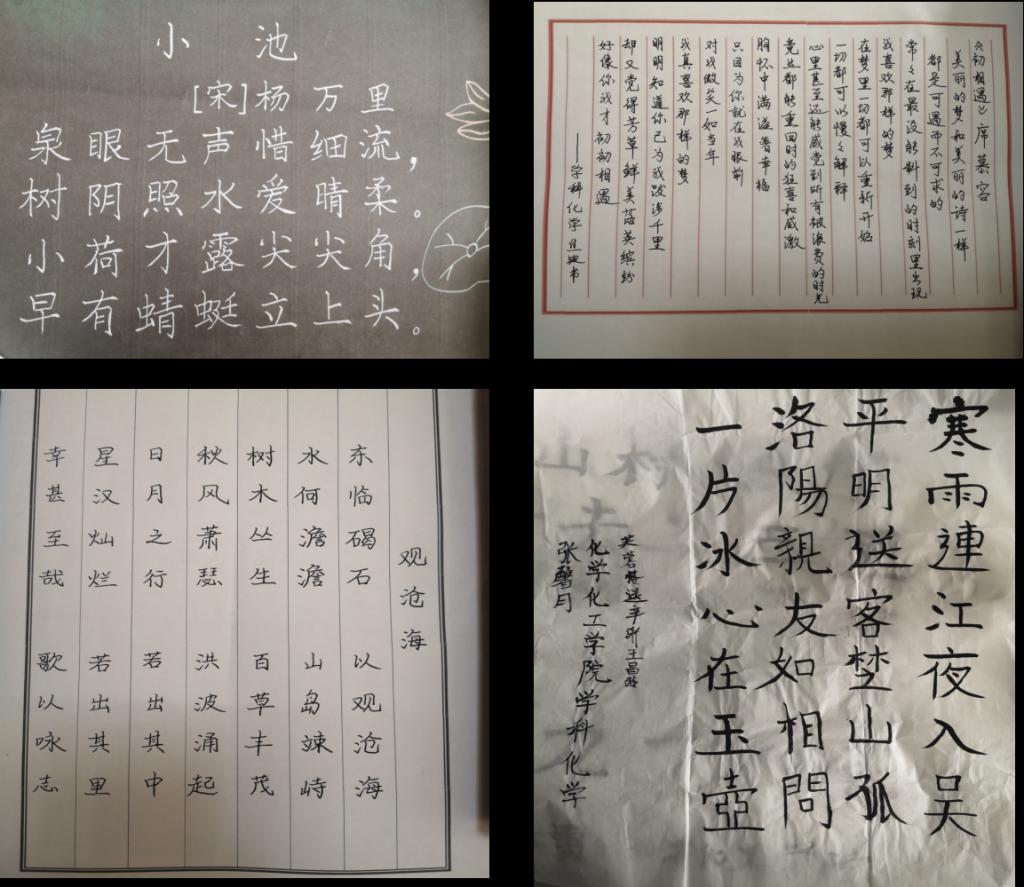 小池
[宋]杨万里
泉眼无声惜细流，
树阴照水爱晴柔。
小荷才露尖尖角，
早有蜻蜓立上头。
《初相遇》席慕容
美丽的梦和美丽的诗一样
都是可遇而不可求的
常常在最没能料到的时刻里出现
我喜欢那样的梦
在梦里一切都可以重新开始
一切都可以慢慢解释
心里甚至还能感觉到所有被浪费的时光
竟然都能重回时的狂喜和感激
胸怀中满溢着幸福
只因为你就在我眼前
对我微笑一如当年
我真喜欢那样的梦
明明知道你已为我跋涉千里
却又觉得芳草鲜美落英缤纷
好像你我才初初相遇
——学科化学
观沧海
东临碣石 以观沧海
水何澹澹 山岛竦峙
树木丛生 百草丰茂
秋风萧瑟 洪波涌起
日月之行 若出其中
星汉灿烂 若出其里
幸甚至哉 歌以咏志
寒雨連江夜入吴
平明送客楚山孤
洛陽親友如相問
一片冰心在玉壺
芙蓉楼送辛渐王昌龄
化学化工学院学科化学
张馨月